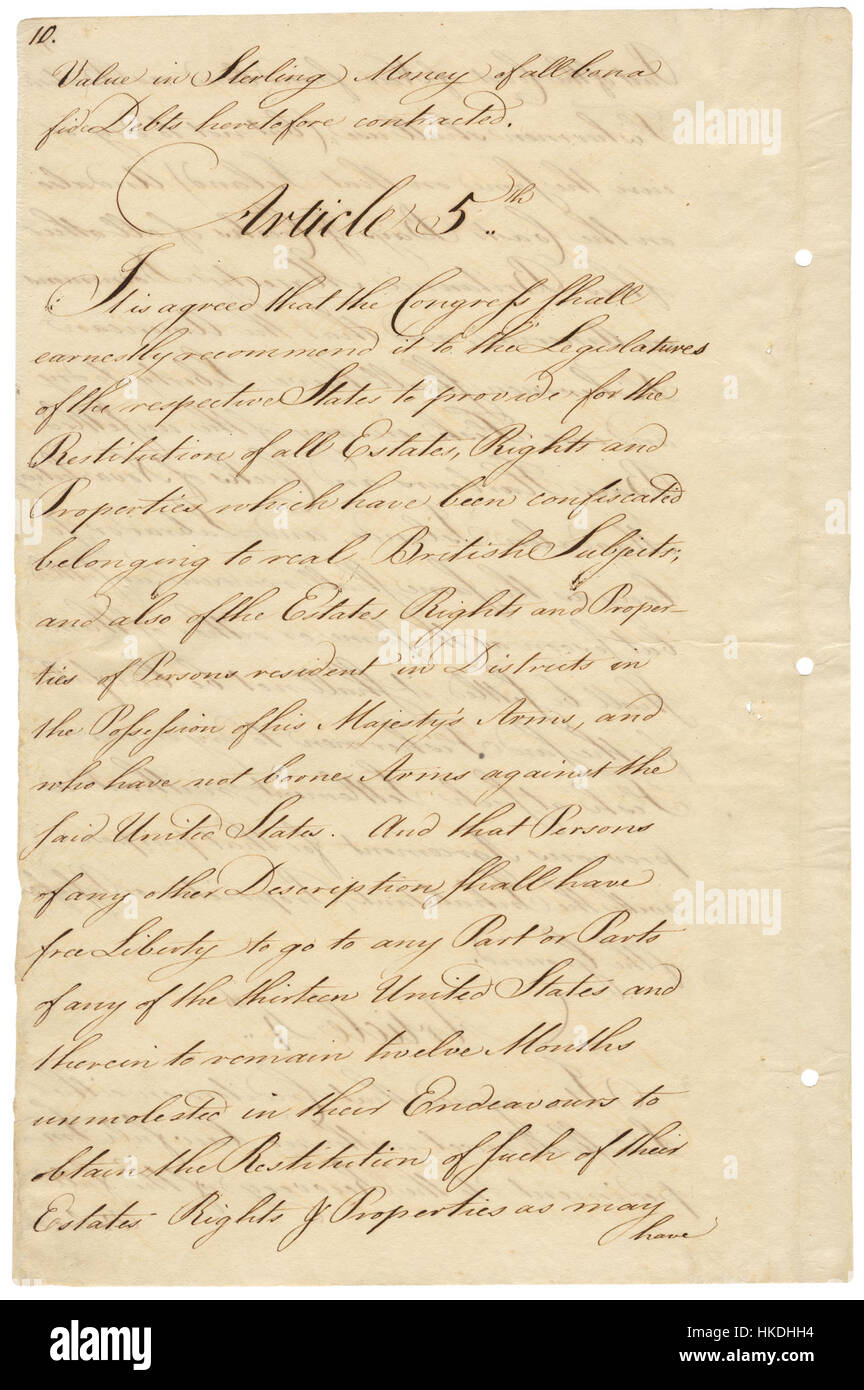 10.
Value in Sterling Money of all bona
fide Debts heretofore contracted.
Article 5th
It is agreed that the Congress shall
earnestly recommend it to the Legislatures
of the respective States to provide for the
Restitution of all Estates, Rights and
Properties which have been confiscated
belonging to real British Subjects;
and also of the Estates Rights and Proper-
ties of Persons resident in Districts in
the Possession of his Majesty's Arms, and
who have not borne Arms against the
said United States. And that Persons
of any other Description shall have
free Liberty to go to any Part or Parts
of any of the thirteen United States and
therein to remain twelve Months
unmolested in their Endeavours to
obtain the Restitution of such of their
Estates Rights & Properties as may
have
alamy
alamy
alamy
a
a
a
a
alamy
Image ID: HKDHH4
www.alamy.com